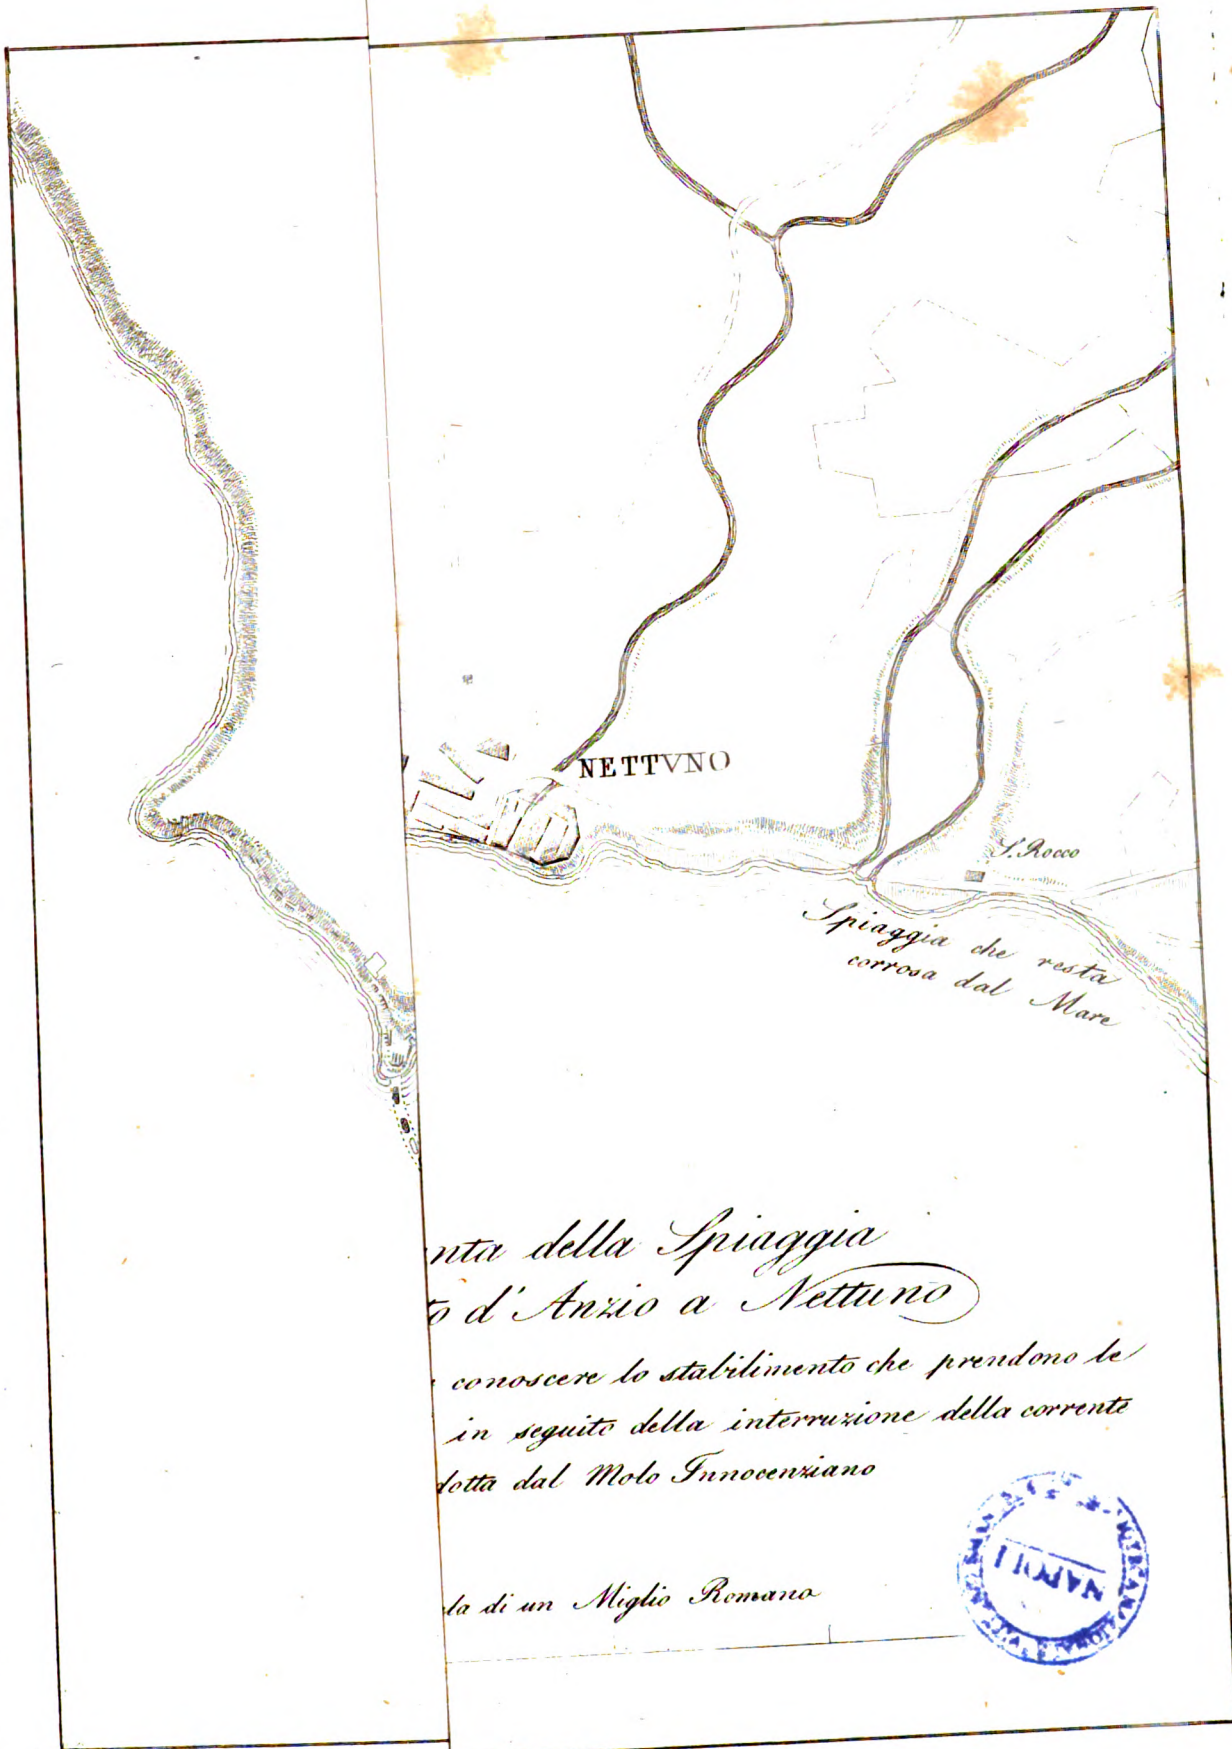 NETTVNO
S. Rocco
Spiaggia che resta
corrosa dal Mare
nta della Spiaggia
to d'Anzio a Nettuno
conoscere lo stabilimento che prendono le
in seguito della interruzione della corrente
dotta dal Molo Innocenziano
la di un Miglio Romano
NAPOLI